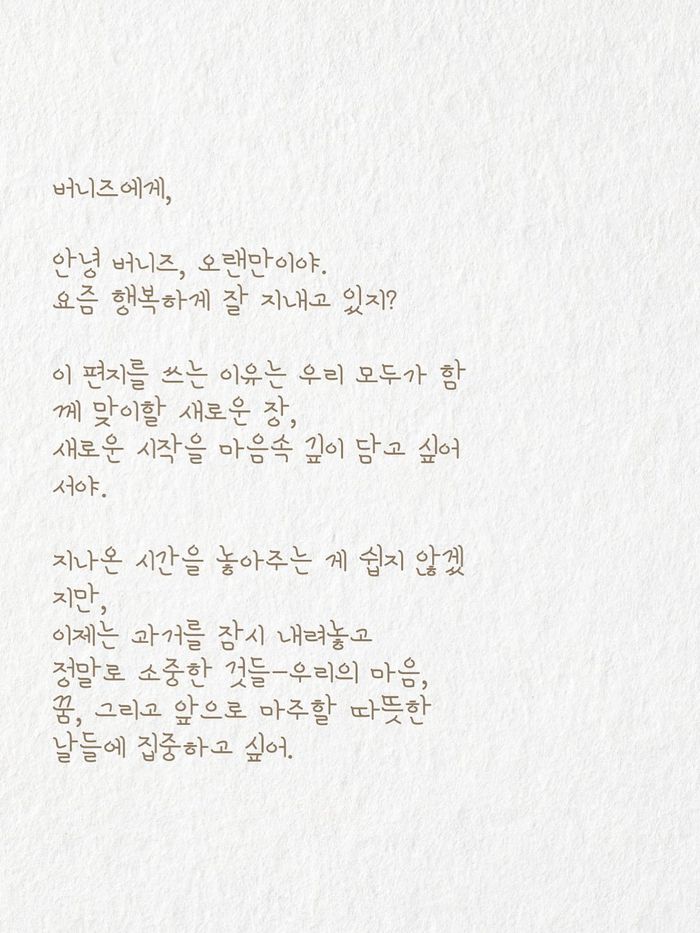 버니즈에게,
안녕 버니즈, 오랜만이야.
요즘 행복하게 잘 지내고 있지?
이 편지를 쓰는 이유는 우리 모두가 함
께 맞이할 새로운 장,
새로운 시작을 마음속 깊이 담고 싶어
서야.
지나온 시간을 놓아주는 게 쉽지 않겠
지만,
이제는 과거를 잠시 내려놓고
정말로 소중한 것들-우리의 마음,
꿈, 그리고 앞으로 마주할 따뜻한
날들에 집중하고 싶어.